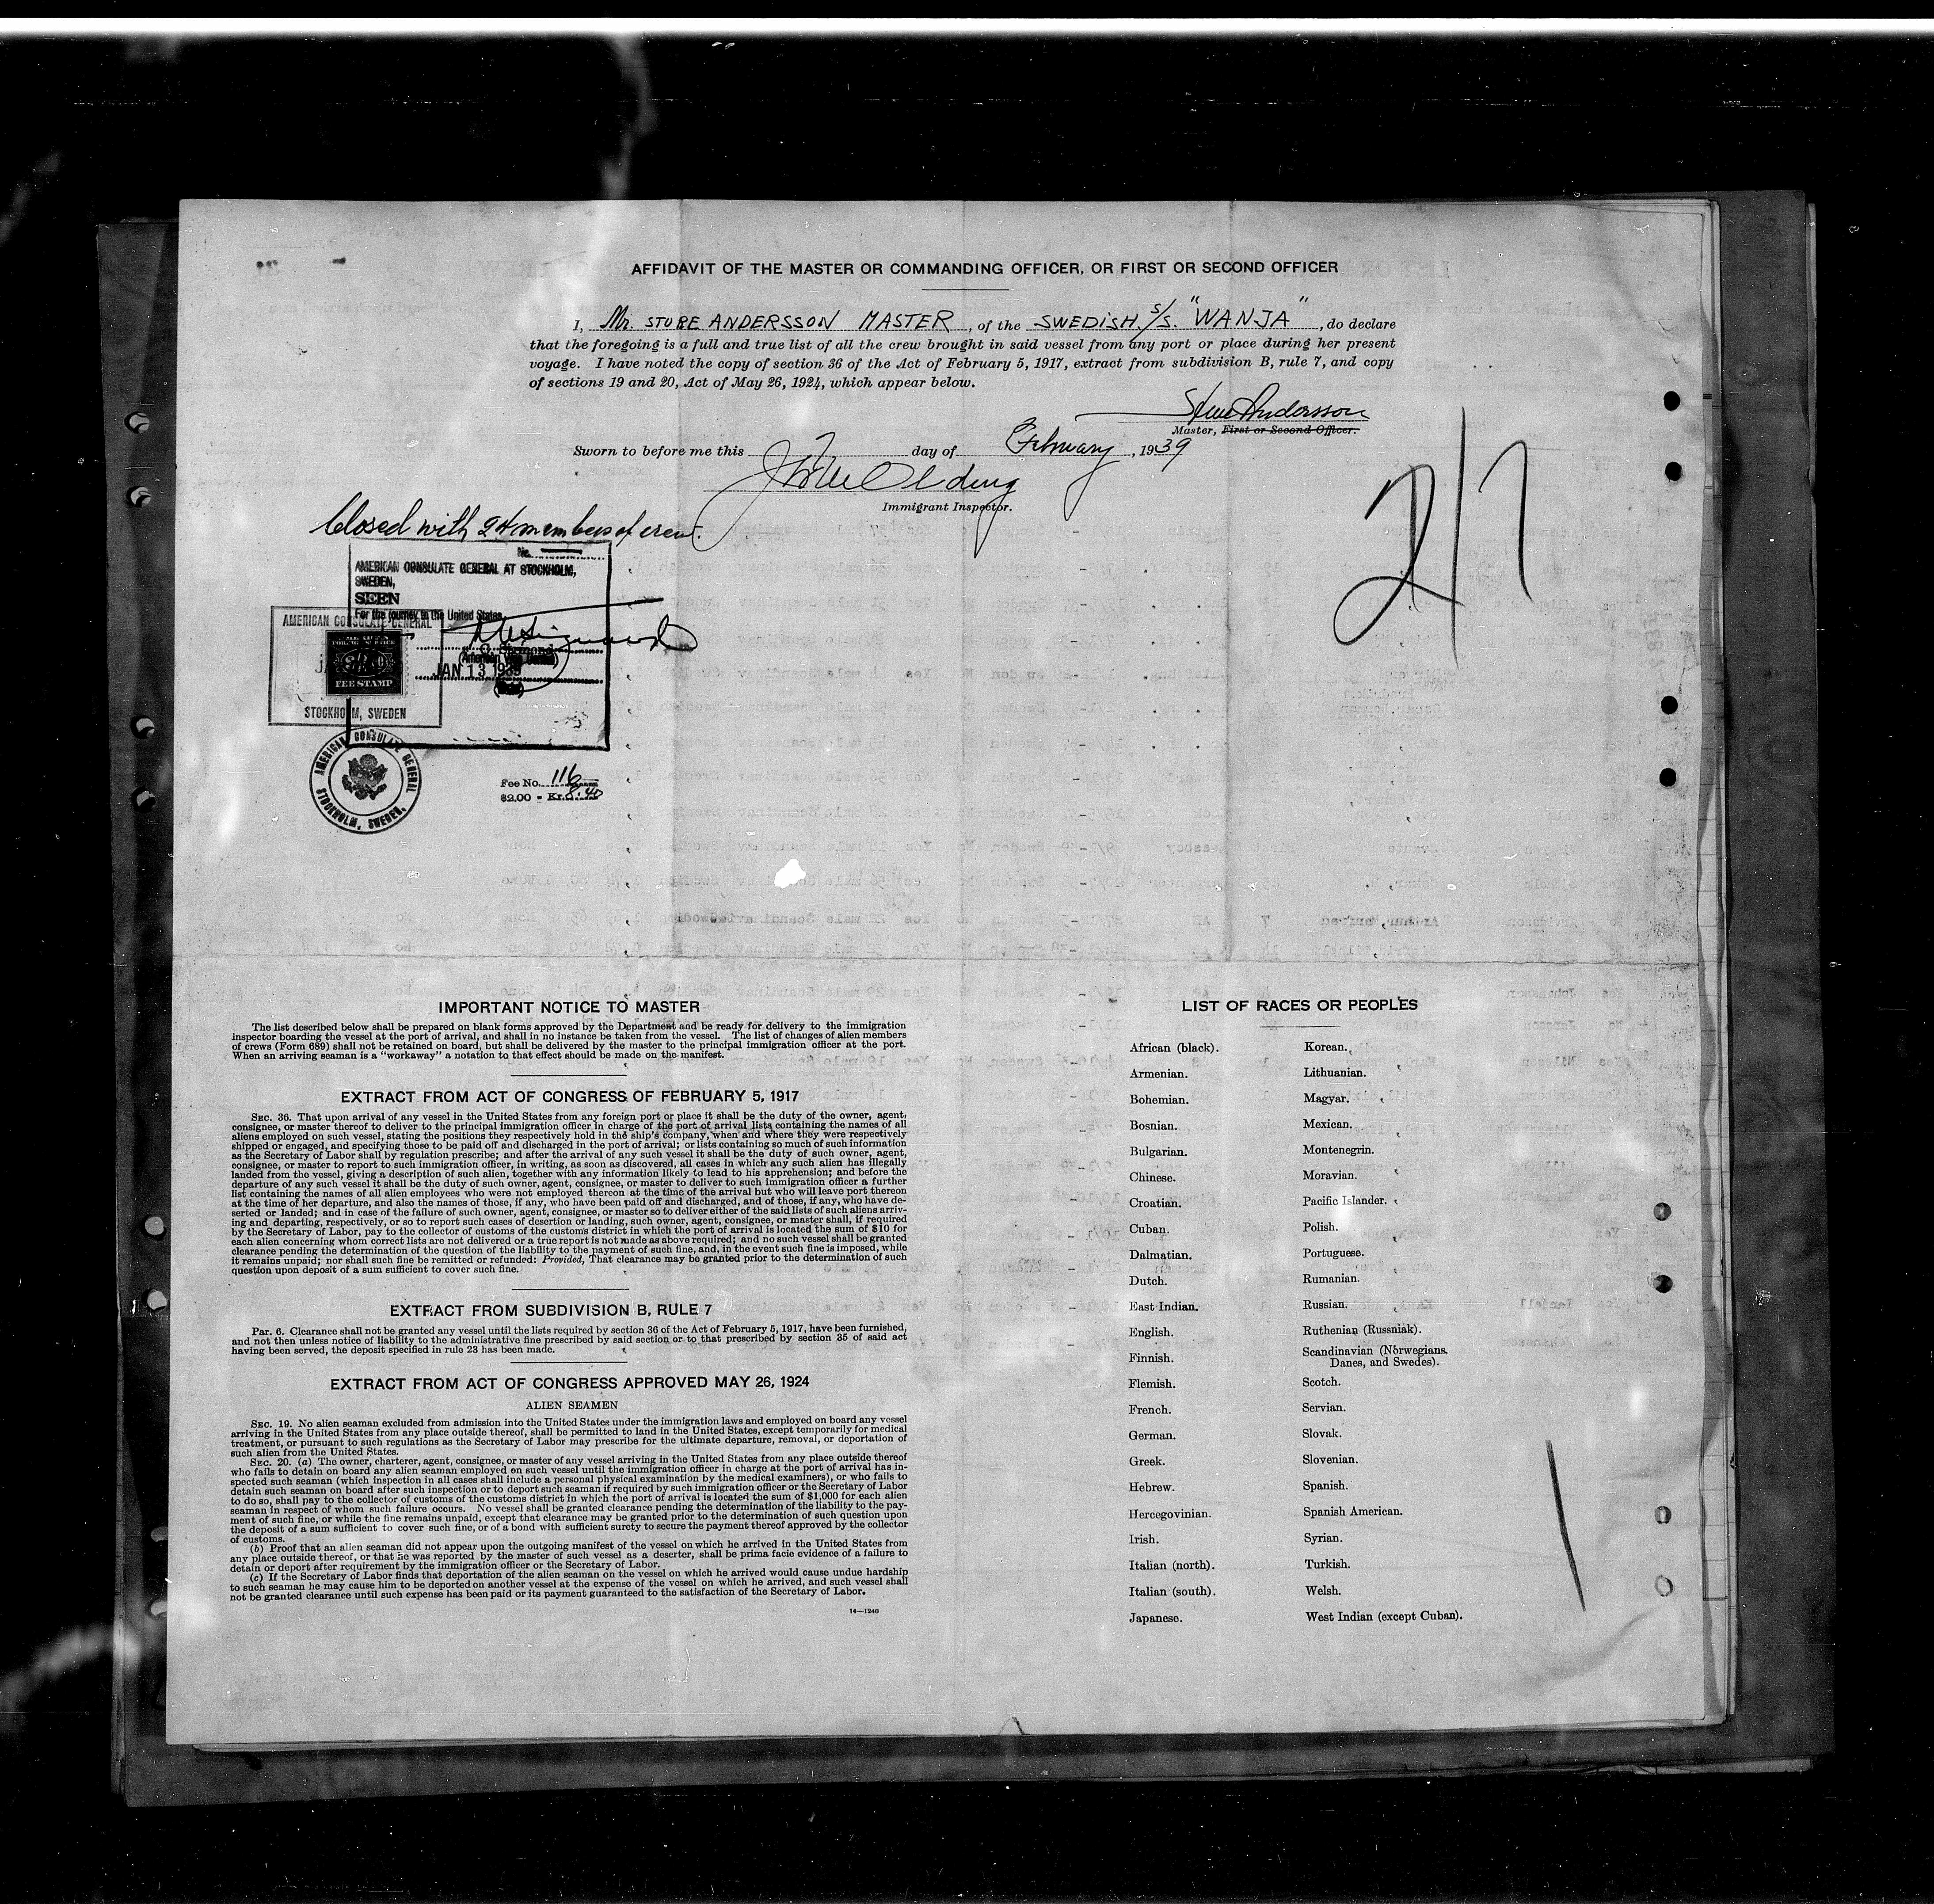 AFFIDAVIT OF THE MASTER OR COMMANDING OFFICER, OR FIRST OR SECOND OFFICER
I, Mr. STURE ANDERSSON MASTER, of the SWEDISH S/S. "WANJA", do declare
that the foregoing is a full and true list of all the crew brought in said vessel from any port or place during her present
voyage. I have noted the copy of section 36 of the Act of February 5, 1917, extract from subdivision B, rule 7, and copy
of sections 19 and 20, Act of May 26, 1924, which appear below.
Sture Andersson
Master, First or Second Officer.
Sworn to before me this 7 day of February, 1939
Immigrant Inspector.
2/7
Closed with 24 members of crew.
No.
AMERICAN CONSULATE GENERAL AT STOCKHOLM,
SWEDEN,
SEEN
For the journey to the United States
AMERICAN CONSULATE GENERAL
(American Vice Consul)
JAN 13 1939
FEE STAMP
STOCKHOLM, SWEDEN
AMERICAN CONSULATE GENERAL
STOCKHOLM, SWEDEN.
Fee No. 116
$2.00 = Kr. 8.40
IMPORTANT NOTICE TO MASTER
The list described below shall be prepared on blank forms approved by the Department and be ready for delivery to the immigration
inspector boarding the vessel at the port of arrival, and shall in no instance be taken from the vessel. The list of changes of alien members
of crews (Form 689) shall not be retained on board, but shall be delivered by the master to the principal immigration officer at the port.
When an arriving seaman is a "workaway" a notation to that effect should be made on the manifest.
EXTRACT FROM ACT OF CONGRESS OF FEBRUARY 5, 1917
SEC. 36. That upon arrival of any vessel in the United States from any foreign port or place it shall be the duty of the owner, agent,
consignee, or master thereof to deliver to the principal immigration officer in charge of the port of arrival lists containing the names of all
aliens employed on such vessel, stating the positions they respectively hold in the ship's company, when and where they were respectively
shipped or engaged, and specifying those to be paid off and discharged in the port of arrival; or lists containing so much of such information
as the Secretary of Labor shall by regulation prescribe; and after the arrival of any such vessel it shall be the duty of such owner, agent,
consignee, or master to report to such immigration officer, in writing, as soon as discovered, all cases in which any such alien has illegally
landed from the vessel, giving a description of such alien, together with any information likely to lead to his apprehension; and before the
departure of any such vessel it shall be the duty of such owner, agent, consignee, or master to deliver to such immigration officer a further
list containing the names of all alien employees who were not employed thereon at the time of the arrival but who will leave port thereon
at the time of her departure, and also the names of those, if any, who have been paid off and discharged, and of those, if any, who have de-
serted or landed; and in case of the failure of such owner, agent, consignee, or master so to deliver either of the said lists of such aliens arriv-
ing and departing, respectively, or so to report such cases of desertion or landing, such owner, agent, consignee, or master shall, if required
by the Secretary of Labor, pay to the collector of customs of the customs district in which the port of arrival is located the sum of $10 for
each alien concerning whom correct lists are not delivered or a true report is not made as above required; and no such vessel shall be granted
clearance pending the determination of the question of the liability to the payment of such fine, and, in the event such fine is imposed, while
it remains unpaid; nor shall such fine be remitted or refunded: Provided, That clearance may be granted prior to the determination of such
question upon deposit of a sum sufficient to cover such fine.
EXTRACT FROM SUBDIVISION B, RULE 7
Par. 6. Clearance shall not be granted any vessel until the lists required by section 36 of the Act of February 5, 1917, have been furnished,
and not then unless notice of liability to the administrative fine prescribed by said section or to that prescribed by section 35 of said act
having been served, the deposit specified in rule 23 has been made.
EXTRACT FROM ACT OF CONGRESS APPROVED MAY 26, 1924
ALIEN SEAMEN
SEC. 19. No alien seaman excluded from admission into the United States under the immigration laws and employed on board any vessel
arriving in the United States from any place outside thereof, shall be permitted to land in the United States, except temporarily for medical
treatment, or pursuant to such regulations as the Secretary of Labor may prescribe for the ultimate departure, removal, or deportation of
such alien from the United States.
SEC. 20. (a) The owner, charterer, agent, consignee, or master of any vessel arriving in the United States from any place outside thereof
who fails to detain on board any alien seaman employed on such vessel until the immigration officer in charge at the port of arrival has in-
spected such seaman (which inspection in all cases shall include a personal physical examination by the medical examiners), or who fails to
detain such seaman on board after such inspection or to deport such seaman if required by such immigration officer or the Secretary of Labor
to do so, shall pay to the collector of customs of the customs district in which the port of arrival is located the sum of $1,000 for each alien
seaman in respect of whom such failure occurs. No vessel shall be granted clearance pending the determination of the liability to the pay-
ment of such fine, or while the fine remains unpaid, except that clearance may be granted prior to the determination of such question upon
the deposit of a sum sufficient to cover such fine, or of a bond with sufficient surety to secure the payment thereof approved by the collector
of customs.
(b) Proof that an alien seaman did not appear upon the outgoing manifest of the vessel on which he arrived in the United States from
any place outside thereof, or that he was reported by the master of such vessel as a deserter, shall be prima facie evidence of a failure to
detain or deport after requirement by the immigration officer or the Secretary of Labor.
(c) If the Secretary of Labor finds that deportation of the alien seaman on the vessel on which he arrived would cause undue hardship
to such seaman he may cause him to be deported on another vessel at the expense of the vessel on which he arrived, and such vessel shall
not be granted clearance until such expense has been paid or its payment guaranteed to the satisfaction of the Secretary of Labor.
14—1240
LIST OF RACES OR PEOPLES
African (black).
Armenian.
Bohemian.
Bosnian.
Bulgarian.
Chinese.
Croatian.
Cuban.
Dalmatian.
Dutch.
East Indian.
English.
Finnish.
Flemish.
French.
German.
Greek.
Hebrew.
Hercegovinian.
Irish.
Italian (north).
Italian (south).
Japanese.
Korean.
Lithuanian.
Magyar.
Mexican.
Montenegrin.
Moravian.
Pacific Islander.
Polish.
Portuguese.
Rumanian.
Russian.
Ruthenian (Russniak).
Scandinavian (Norwegians,
Danes, and Swedes).
Scotch.
Servian.
Slovak.
Slovenian.
Spanish.
Spanish American.
Syrian.
Turkish.
Welsh.
West Indian (except Cuban).